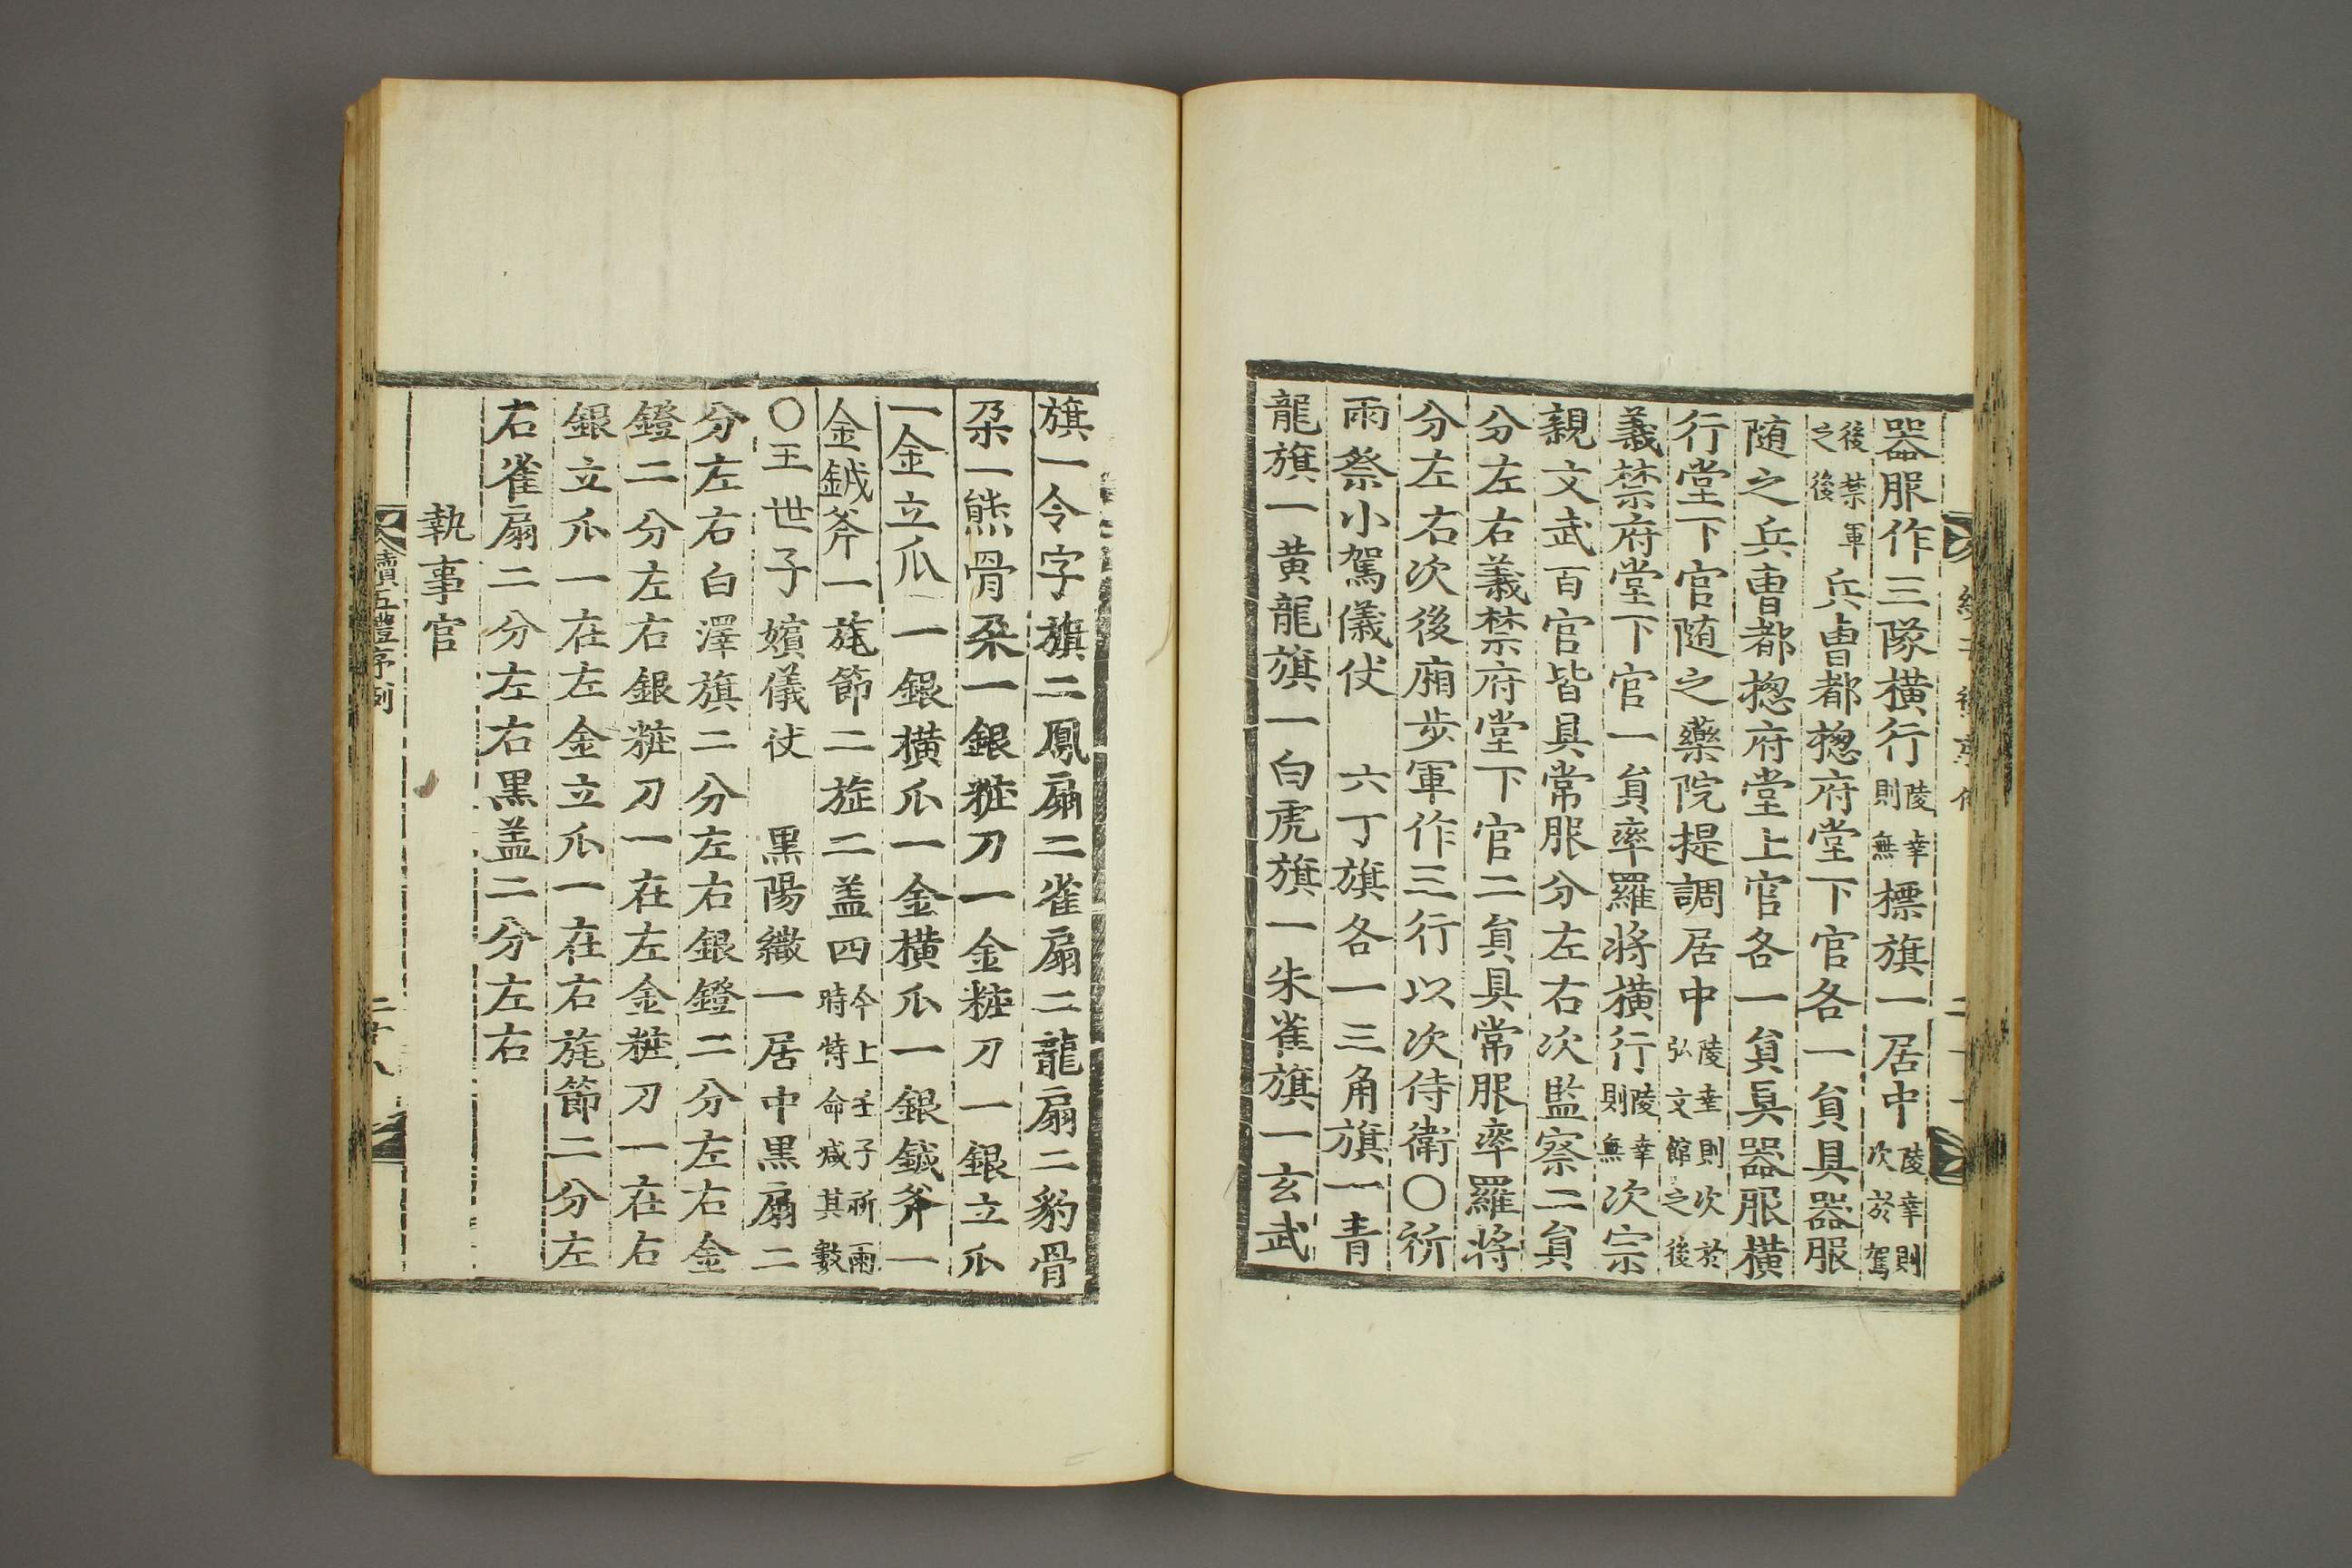 器服作三隊橫行陵幸則無標旗一居中陵幸則次於駕
後禁軍之後兵曺都摠府堂下官各一貟具器服
随之兵曺都摠府堂上官各一貟具器服橫
行堂下官随之藥院提調居中陵幸則次於弘文館之後
義禁府堂下官一貟率羅將橫行陵幸則無次宗
親文武百官皆具常服分左右次監察二貟
分左右義禁府堂下官二貟具常服率羅將
分左右次後廂步軍作三行以次侍衛〇祈
雨祭小駕儀仗 六丁旗各一三角旗一青
龍旗一黃龍旗一白虎旗一朱雀旗一玄武
旗一令字旗二鳳扇二雀扇二龍扇二豹骨
朶一熊骨朶一銀粧刀一金粧刀一銀立爪
一金立爪一銀橫爪一金橫爪一銀鉞斧一
金鉞斧一旄節二旌二盖四今上壬子祈雨時特命减其數
〇王世子嬪儀仗 黑陽繖一居中黑扇二
分左右白澤旗二分左右銀鐙二分左右金
鐙二分左右銀粧刀一在左金粧刀一在右
銀立爪一在左金立爪一在右旄節二分左
右雀扇二分左右黑盖二分左右
執事官
續五禮序例